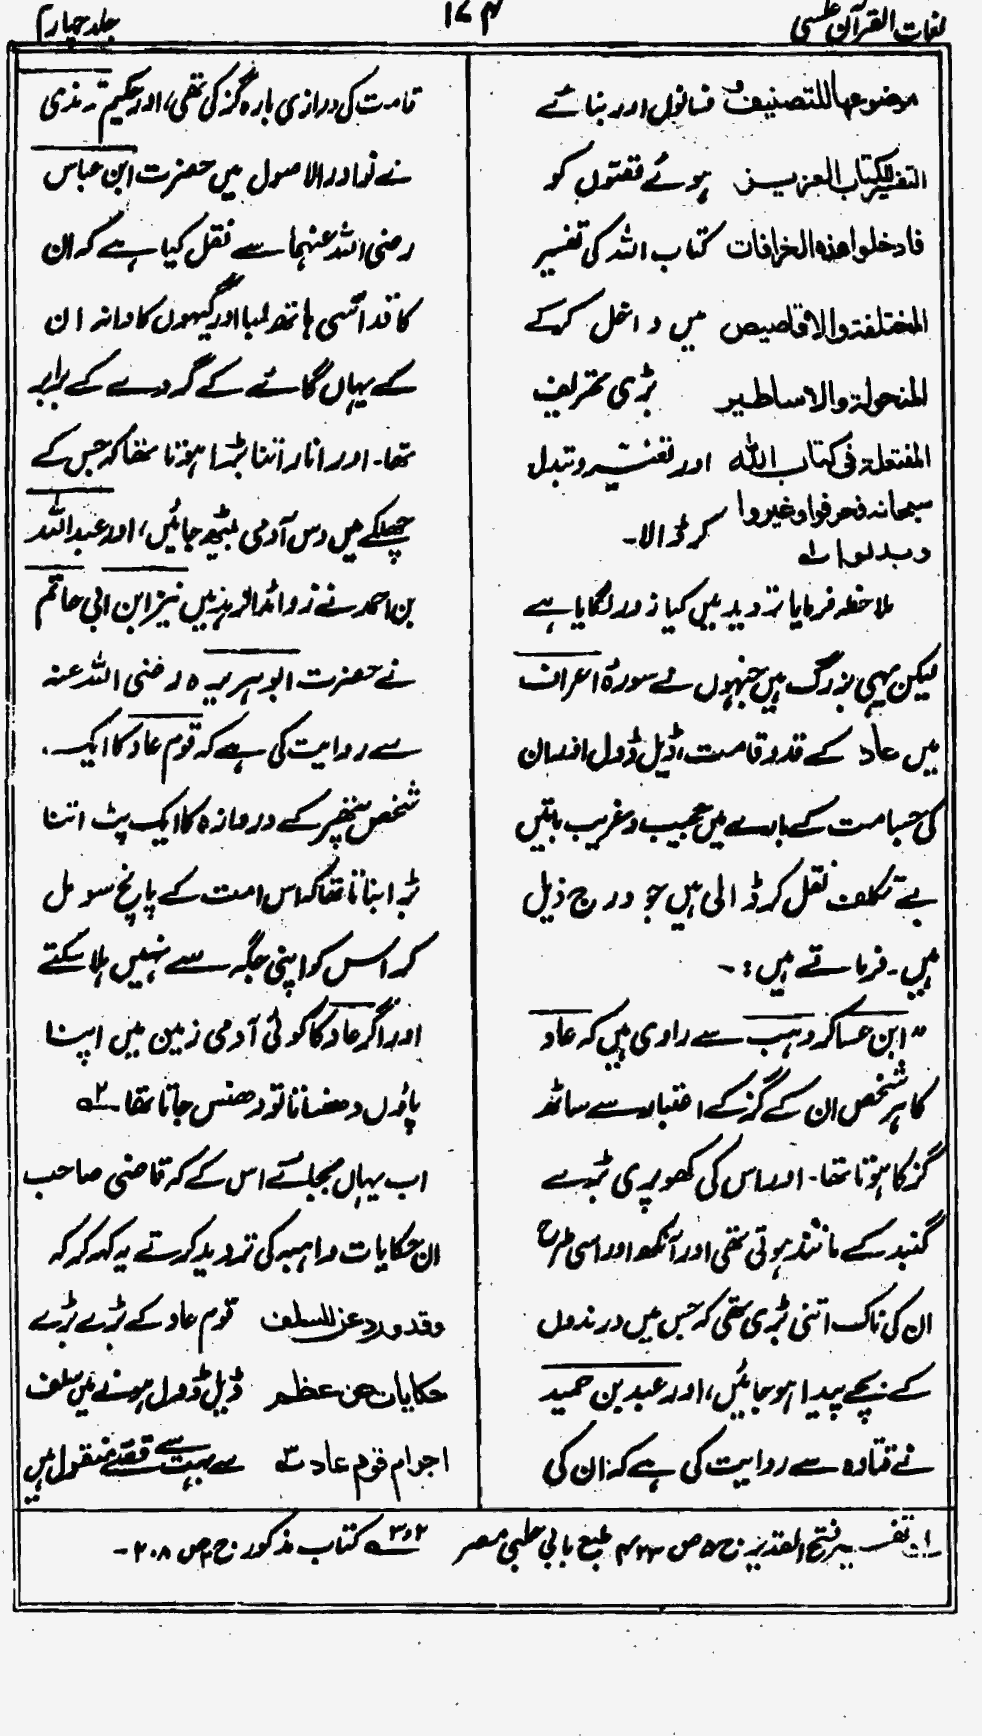 لغات القرآن عکسی
۱۷۴
جلد چہارم
موضوعہا للتصنیف فسانوں اور بنائے
التفسیر للکتاب العزیز ہوئے قصّوں کو
فادخلوا ھذہ الخرافات کتاب اللہ کی تفسیر
المختلفۃ والاقاصیص میں داخل کرکے
المنحولۃ والاساطیر بڑی تحریف
المفتعلۃ فی کتاب اللہ اور تغییر و تبدل
سبحانہ فحرفوا وغیروا کر ڈالا۔
وبدلوا لہ
ملاحظہ فرمایا تردید میں کیا زور لگایا ہے
لیکن یہی بزرگ ہیں جنہوں نے سورۂ اعراف
میں عاد کے قد و قامت، ڈیل ڈول اور ان
کی جسامت کے بارے میں عجیب و غریب باتیں
بے تکلف نقل کر ڈالی ہیں جو درج ذیل
ہیں۔ فرماتے ہیں:۔
”ابن عساکر وہب سے راوی ہیں کہ عاد
کا ہر شخص ان کے گز کے اعتبار سے ساٹھ
گز کا ہوتا تھا۔ اور اس کی کھوپری بڑے
گنبد کے مانند ہوتی تھی اور آنکھ اور اسی طرح
ان کی ناک اتنی بڑی تھی کہ جس میں درندوں
کے بچے پیدا ہو جائیں، اور عبد بن حمید
نے قتادہ سے روایت کی ہے کہ ان کی
قامت کی درازی بارہ گز کی تھی، اور حکیم ترمذی
نے نوادر الاصول میں حضرت ابن عباس
رضی اللہ عنہما سے نقل کیا ہے کہ ان
کا قد اسّی ہاتھ لمبا اور گیہوں کا دانہ ان
کے یہاں گائے کے گردے کے برابر
تھا۔ اور انار اتنا بڑا ہوتا تھا کہ جس کے
چھلکے میں دس آدمی بیٹھ جائیں، اور عبد اللہ
بن احمد نے زوائد الزہد میں نیز ابن ابی حاتم
نے حضرت ابو ہریرہ رضی اللہ عنہ
سے روایت کی ہے کہ قوم عاد کا ایک
شخص پتھر کے دروازہ کا ایک پٹ اتنا
بڑا بناتا تھا کہ اس امت کے پانچ سو مل
کر اس کو اپنی جگہ سے نہیں ہلا سکتے
اور اگر عاد کا کوئی آدمی زمین میں اپنا
پاؤں دھنساتا تو دھنس جاتا تھا ۲ہ
اب یہاں بجائے اس کے کہ قاضی صاحب
ان حکایات واہیہ کی تردید کرتے یہ کہہ کر کہ
وقد ورد عن السلف قوم عاد کے بڑے بڑے
حکایات عن عظم ڈیل ڈول ہونے میں سلف
اجرام قوم عاد ۳ہ سے بہت سے قصّے منقول ہیں
۱ہ تفسیر فتح القدیر ج ۵ ص ۴۲۳ طبع بابی حلبی مصر ۲و۳ہ کتاب مذکور ج ۲ ص ۲۰۸۔